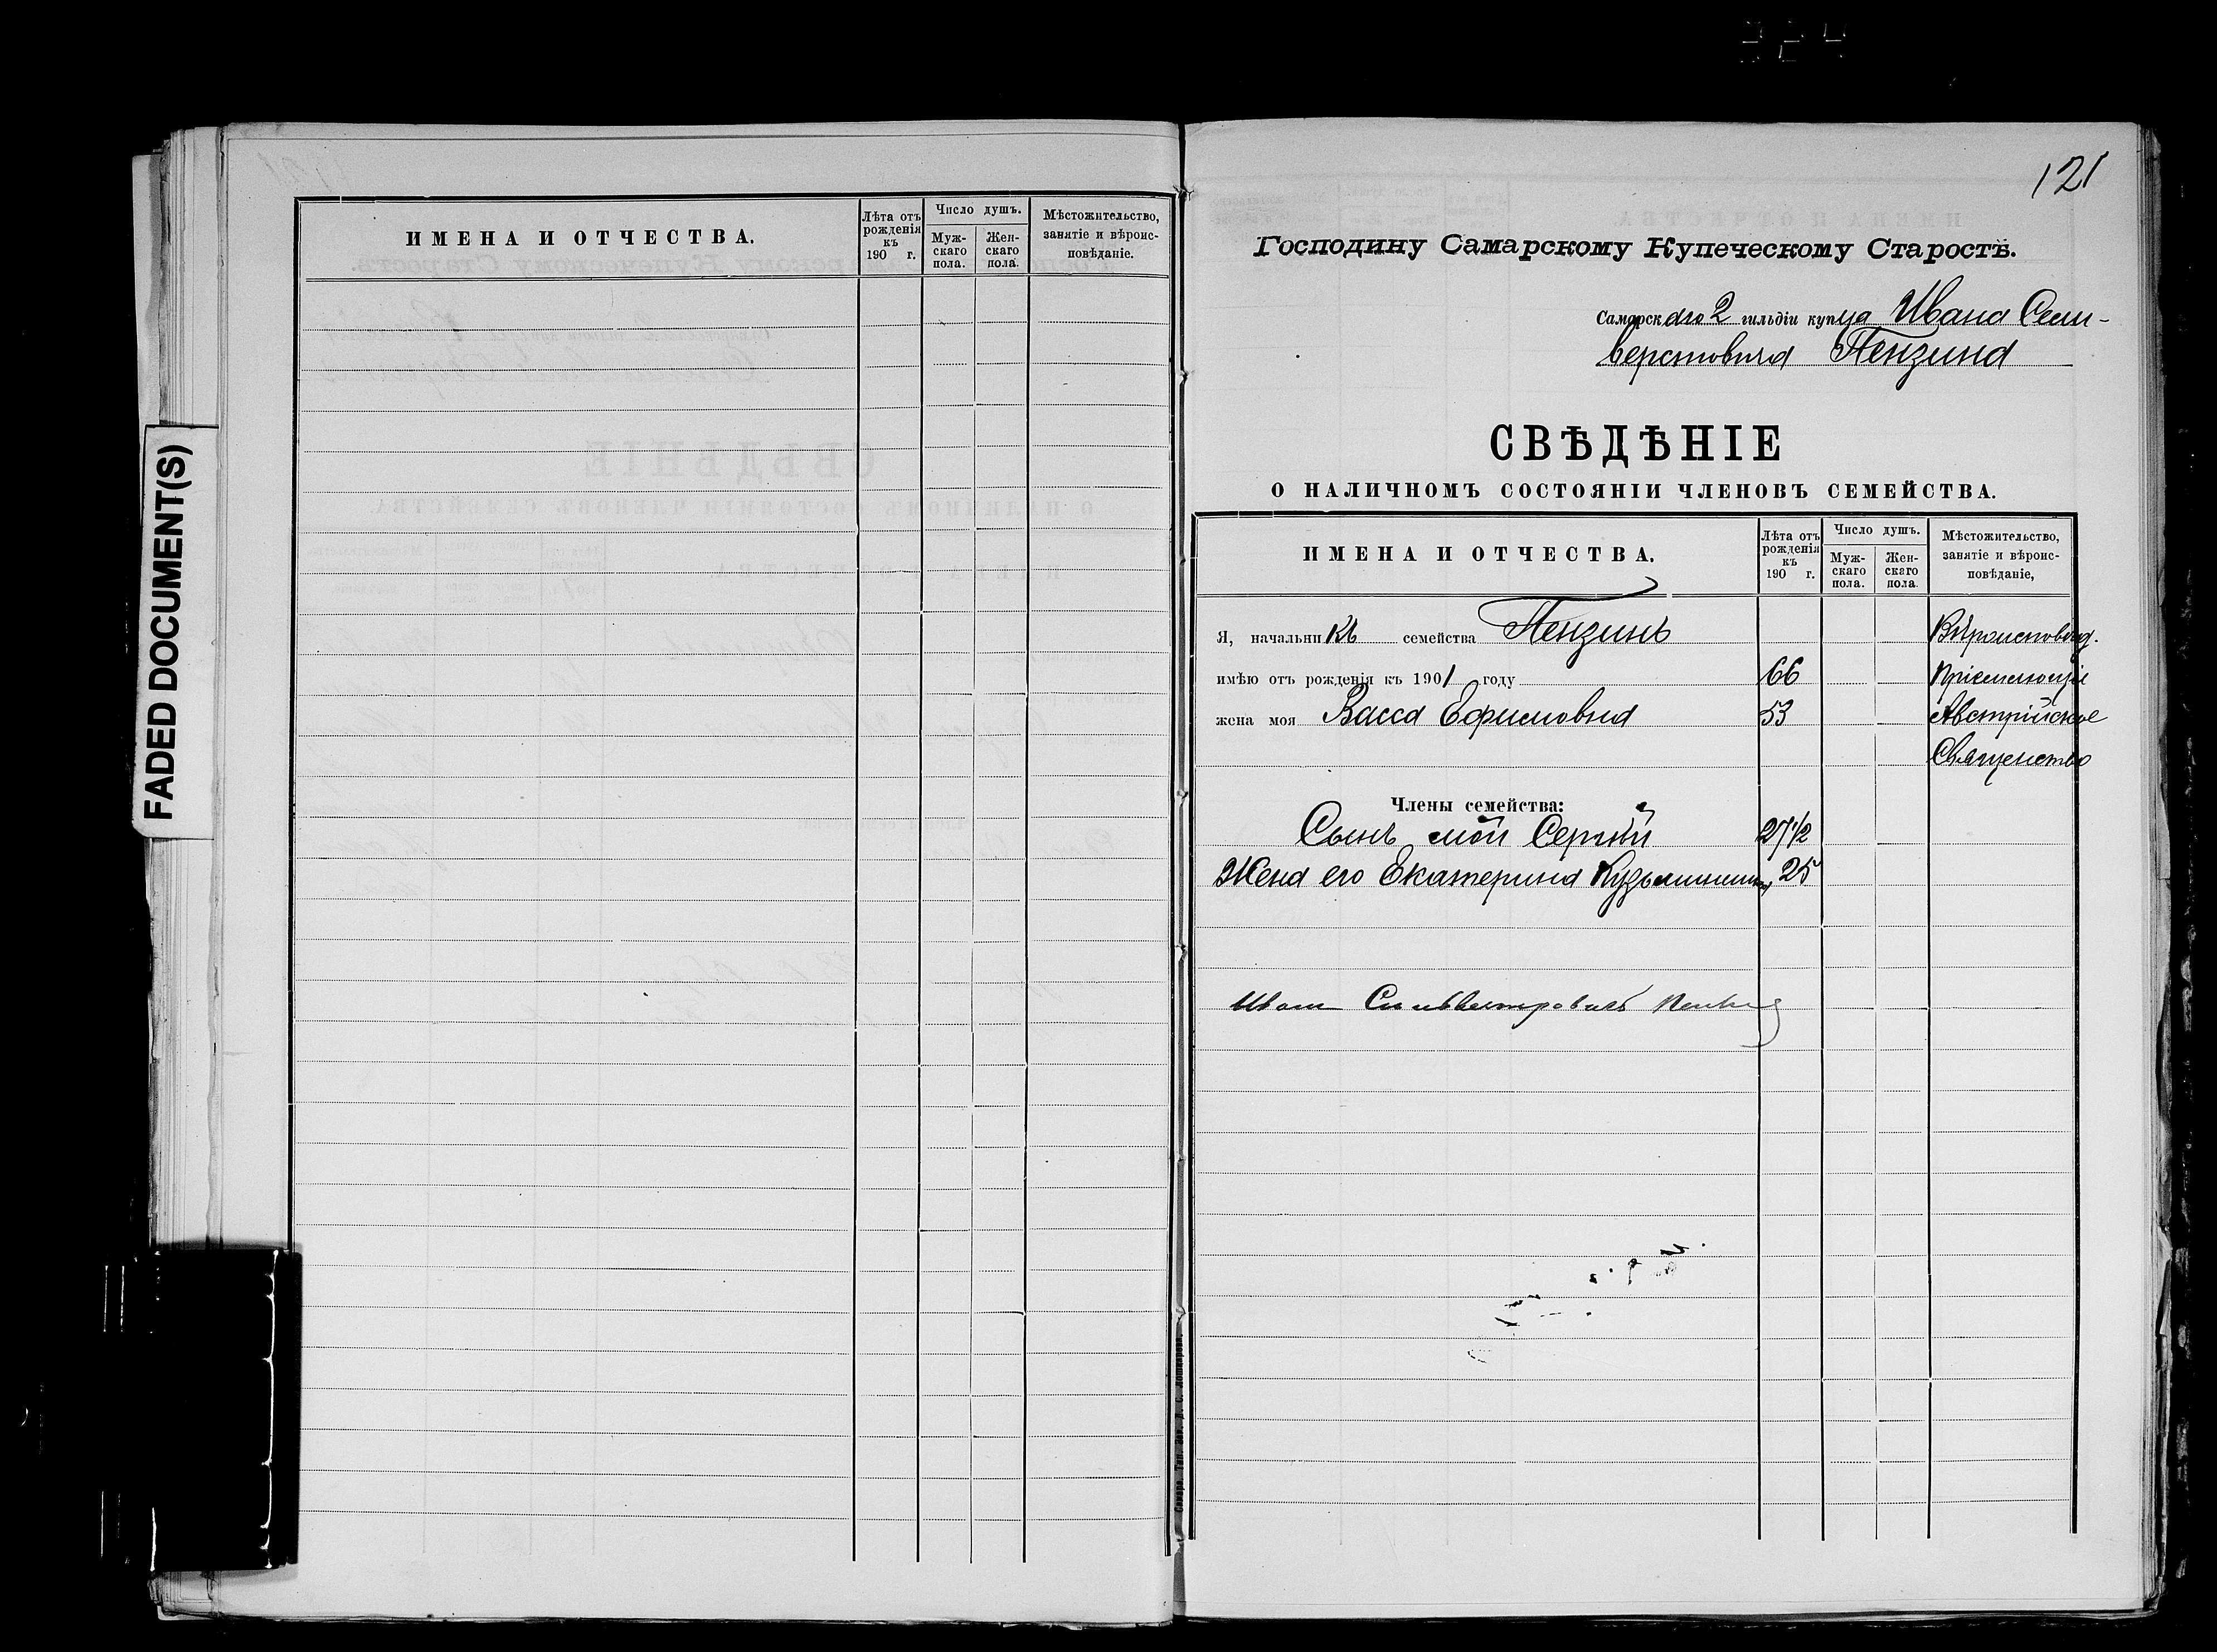 324
FADED DOCUMENT(S)
ИМЕНА И ОТЧЕСТВА.
Лѣта отъ рожденія къ 190 г.
Число душъ.
Муж-скаго пола.
Жен-скаго пола.
Мѣстожительство, занятіе и вѣроис-повѣданіе.
121
Господину Самарскому Купеческому Старостѣ.
Самарскаго 2 гильдіи купца Ивана Сели-
верстовича Пензина
СВѢДѢНІЕ
О НАЛИЧНОМЪ СОСТОЯНІИ ЧЛЕНОВЪ СЕМЕЙСТВА.
ИМЕНА И ОТЧЕСТВА.
Лѣта отъ рожденія къ 190 г.
Число душъ.
Муж-скаго пола.
Жен-скаго пола.
Мѣстожительство, занятіе и вѣроис-повѣданіе,
Я, начальникъ семейства Пензинъ Вѣроисповѣд.
имѣю отъ рожденія къ 1901 году 66 Пріемлющіе
жена моя Васса Ефимовна 53 Австрійское
Священство
Члены семейства:
Сынъ мой Сергѣй 27 1/2
Жена его Екатерина Кузьминишна 25
Иванъ
Самара. Тип.